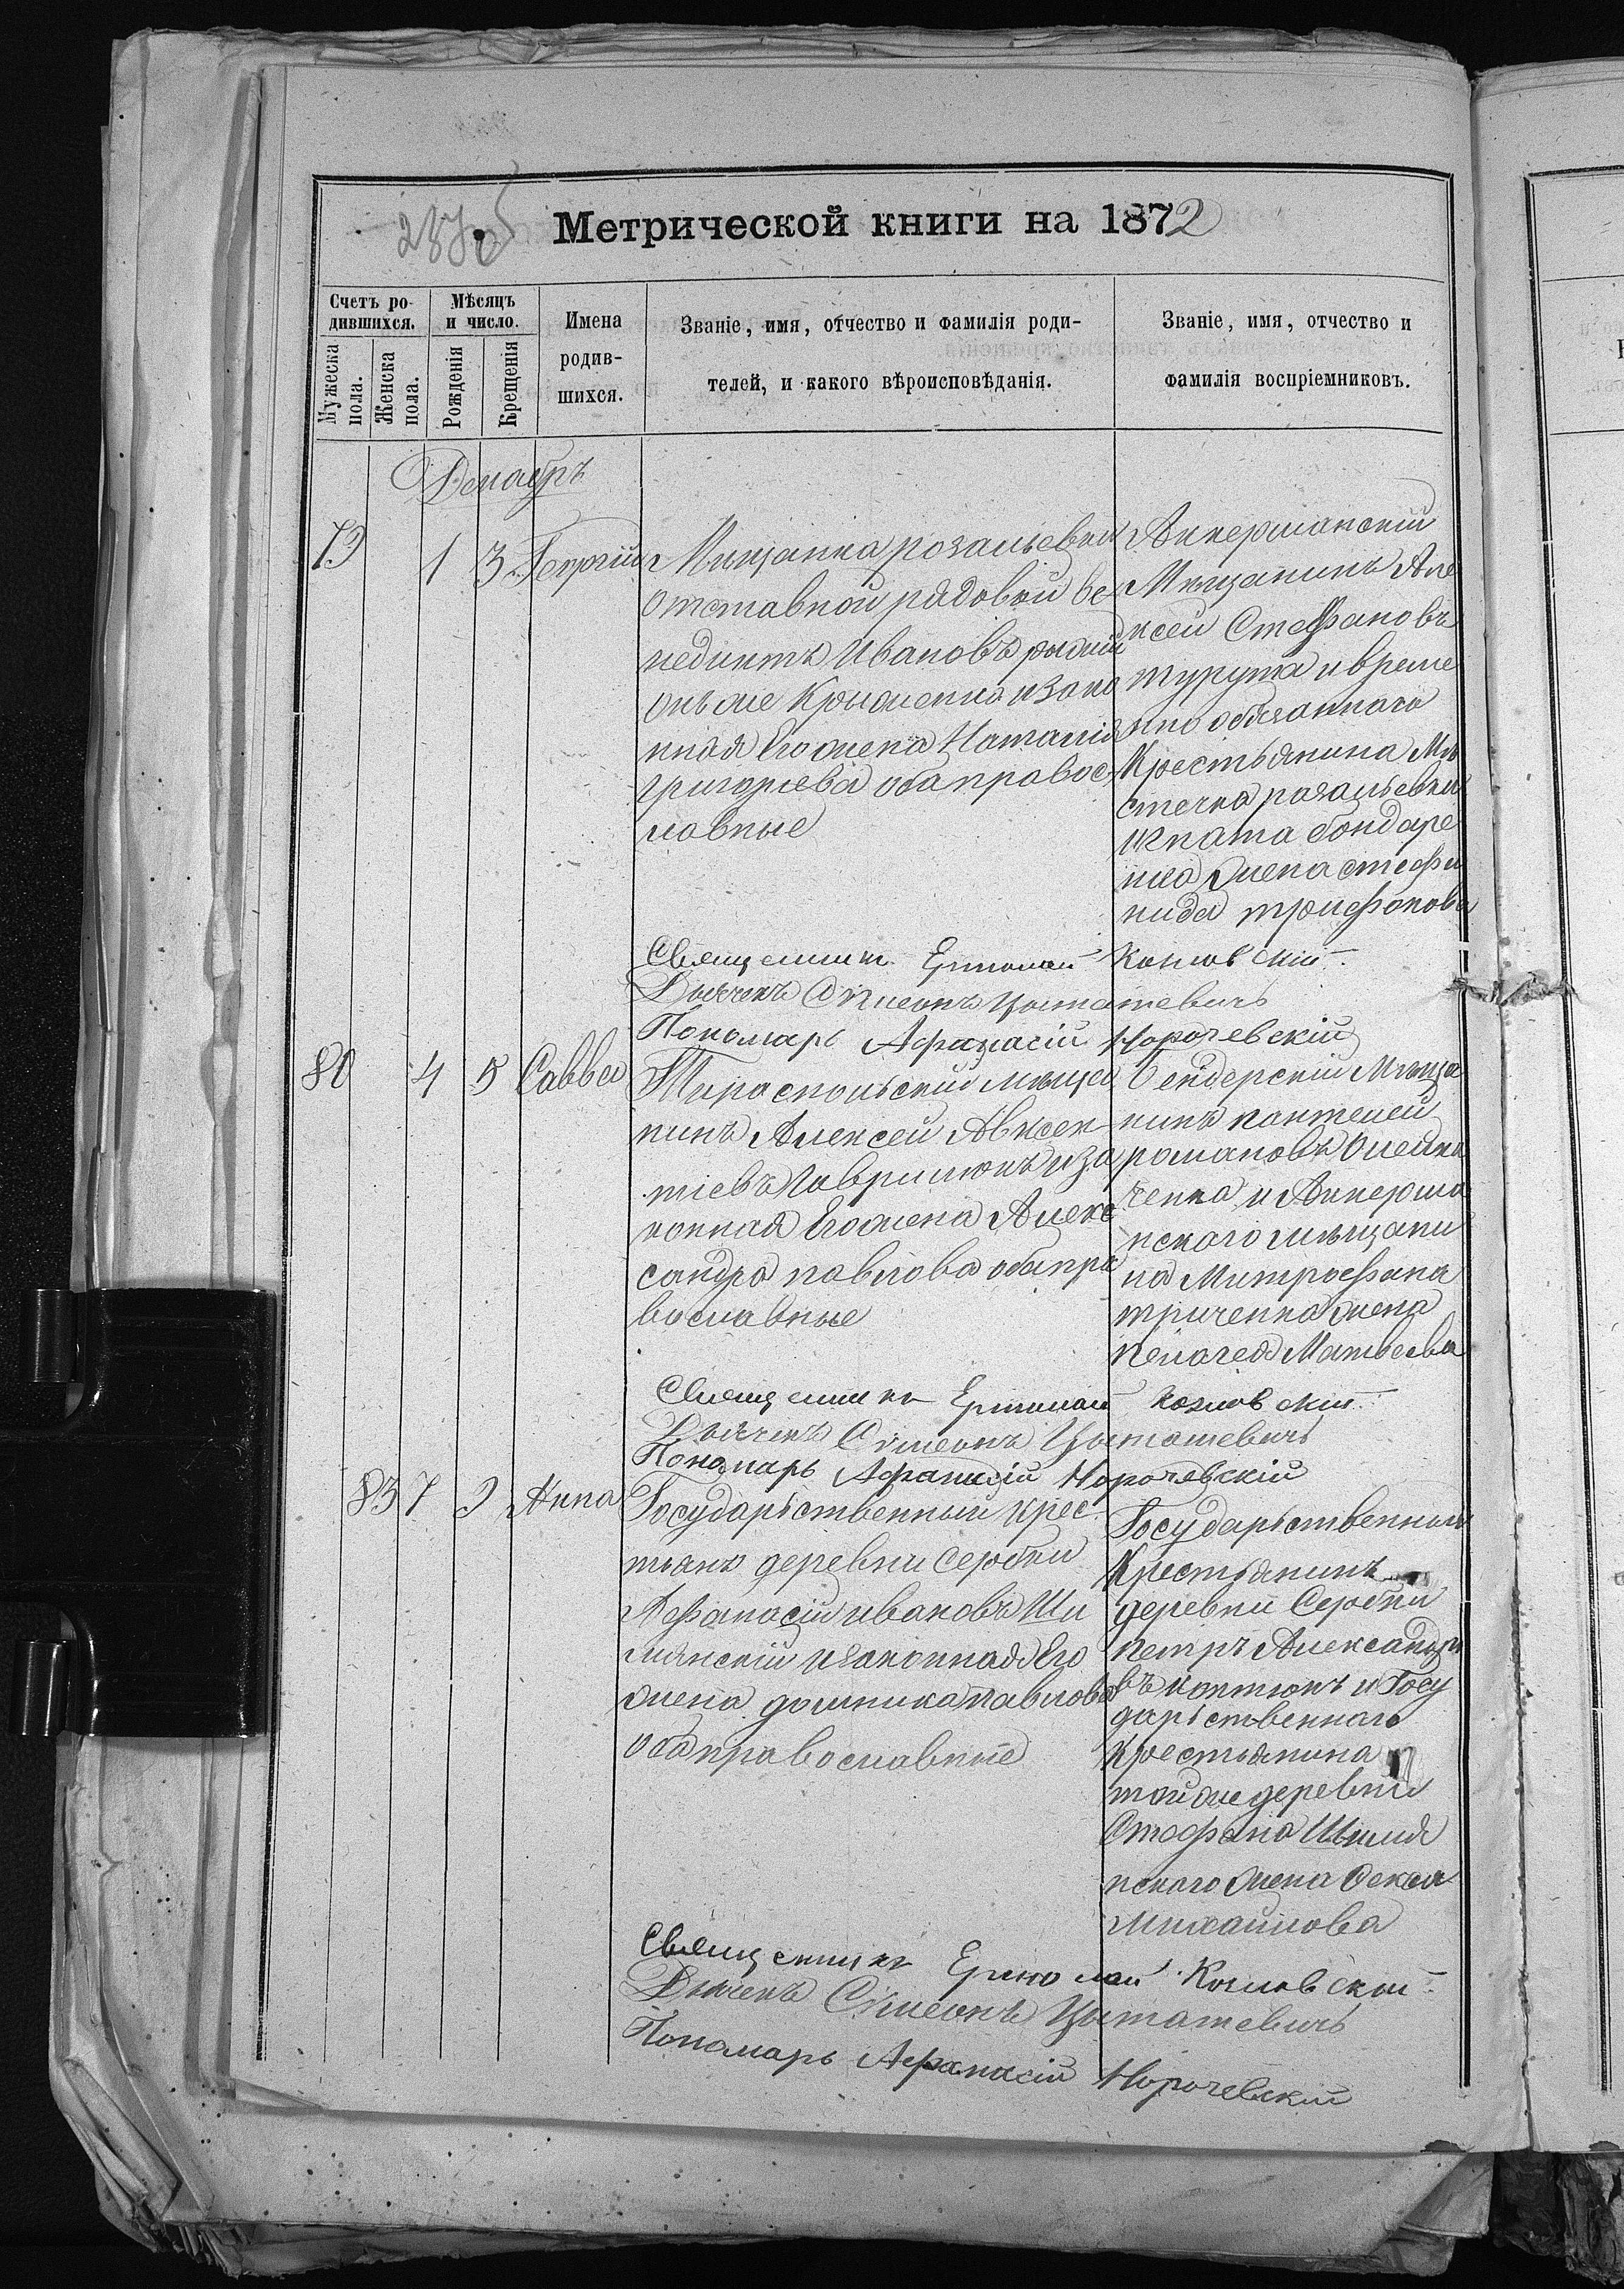 Метрической книги на 1872
Счетъ ро-
дившихся.
Мужеска
пола.
Женска
пола.
Мѣсяцъ
и число.
Рожденія
Крещенія
Имена
родив-
шихся.
Званіе, имя, отчество и фамилія роди-
телей, и какого вѣроисповѣданія.
Званіе, имя, отчество и
фамилія воспріемниковъ.
Декабрь
79 1 3 Георгій
Отставной рядовой Ве
недиктъ Ивановъ
онъ же и зако
нная Его жена Наталія
григорьева оба правос
лавные
Аккерманскій
Мѣщанинъ Але
ксей Стефановъ
турута и време
нно обязаннаго
Крестьянина Мѣ
стечка
Игната бондаре
нка Жена стефа
нида трифонова
Священникъ Ермолай Козловскій
Дьячекъ Симеонъ
Пономарь Афанасій
80 4 5 Савва
Тираспольскій мѣща
нинъ Алексей Авксен
тіевъ Гаврилюкъ и за
конная Его жена Алекс
сандра павлова оба пра
вославные
Бендерскій Мѣща
нинъ пантелей
романовъ Олейни
ченко и Аккерма
нскаго мѣщани
на Митрофана
жена
пелагея Матвеева
Священникъ Ермолай Козловскій
Дьячекъ Симеонъ
Пономарь Афанасій
83 7 9 Анна
Государьственный крес
тьянъ деревни Сербки
Афанасій ивановъ Ши
мянскій и законная Его
жена домника павлова
оба православные
Государьственный
Крестьянинъ
деревни Сербки
петръ Александро
въ и Госу
дарьственнаго
Крестьянина
тойже деревни
Стефана Шимя
нскаго Жена
михайлова
Священникъ Ермолай Козловскій
Дьячекъ Симеонъ
Пономарь Афанасій